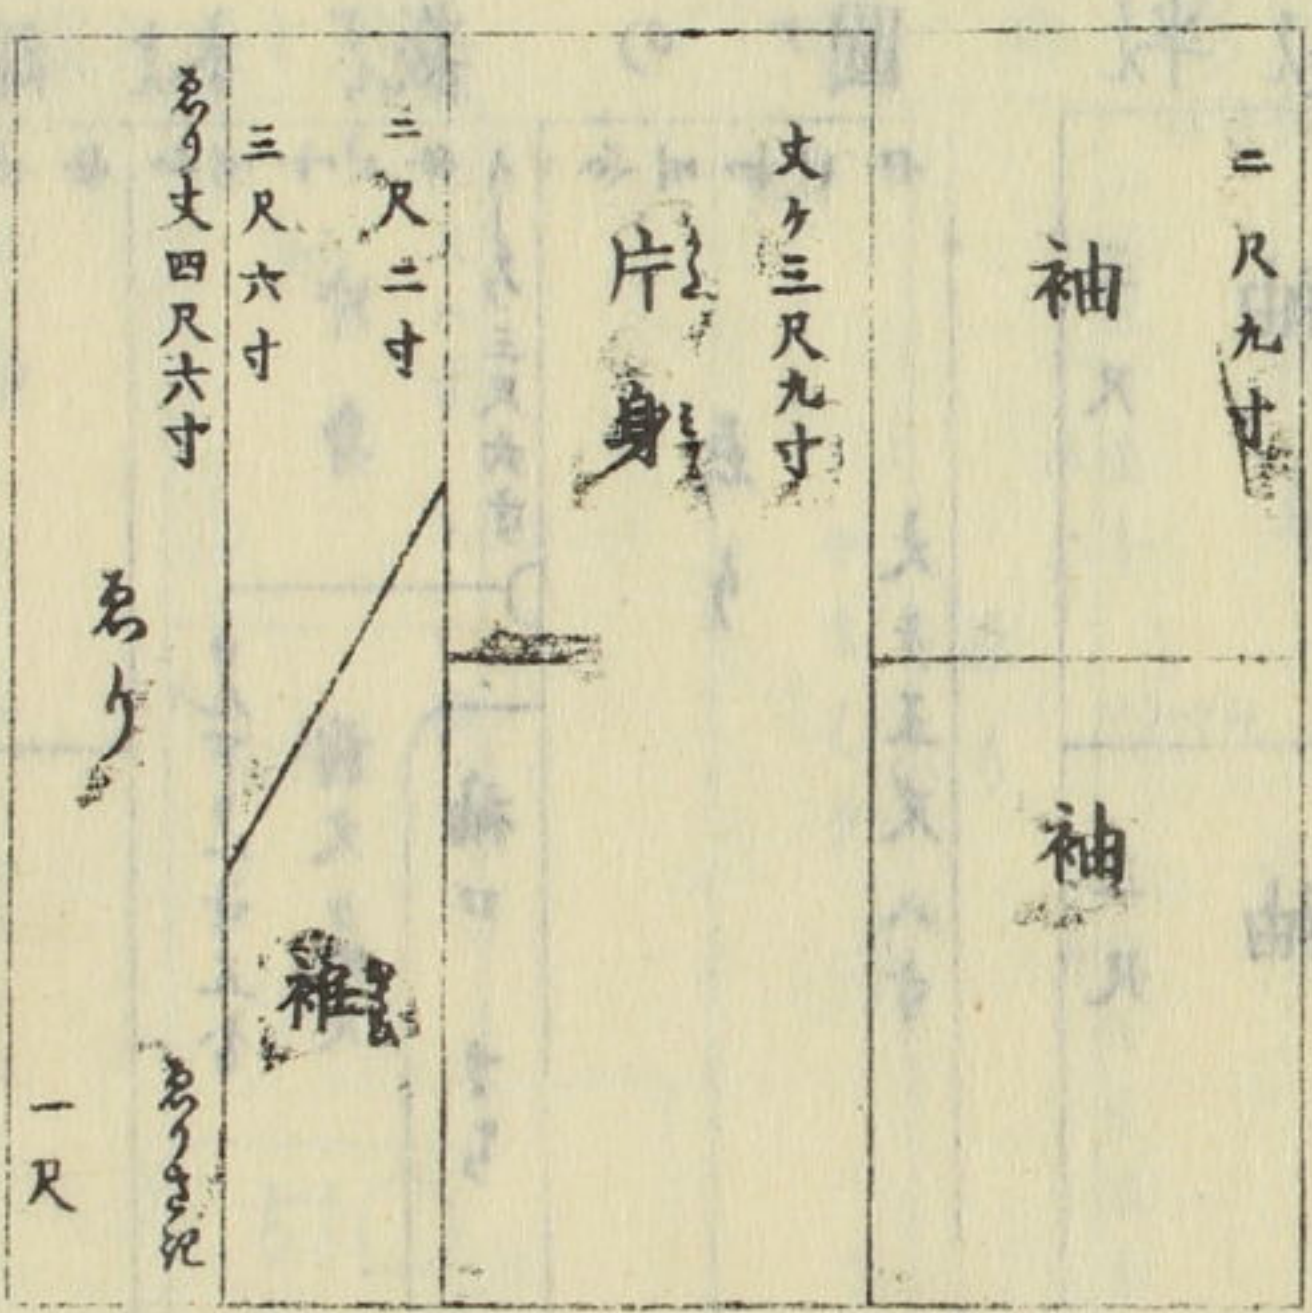 二尺九寸
袖
袖
丈ケ三尺九寸
片身
二尺二寸
三尺六寸
ゑり丈四尺六寸
ゑり
ゑりさ記
一尺